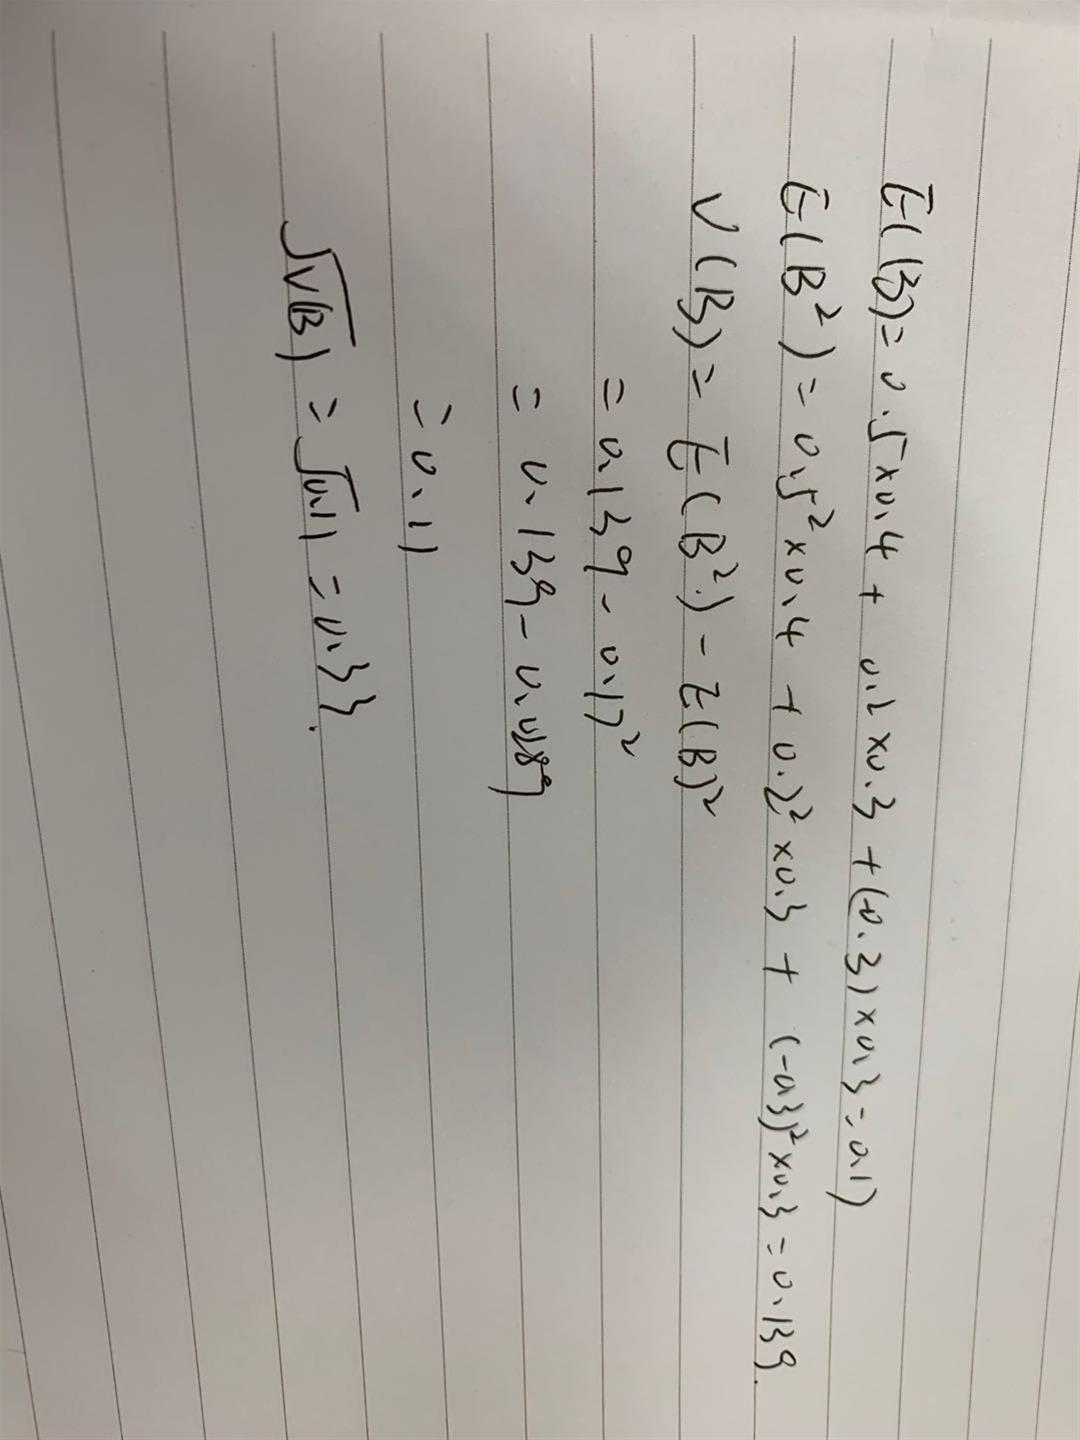 E(B)=0.5×0.4+0.2×0.3+(-0.3)×0.3=0.17
E(B²)=0.5²×0.4+0.2²×0.3+(-0.3)²×0.3=0.139.
V(B)=E(B²)-E(B)²
=0.139-0.17²
=0.139-0.0289
=0.11
√V(B)=√0.11=0.33.